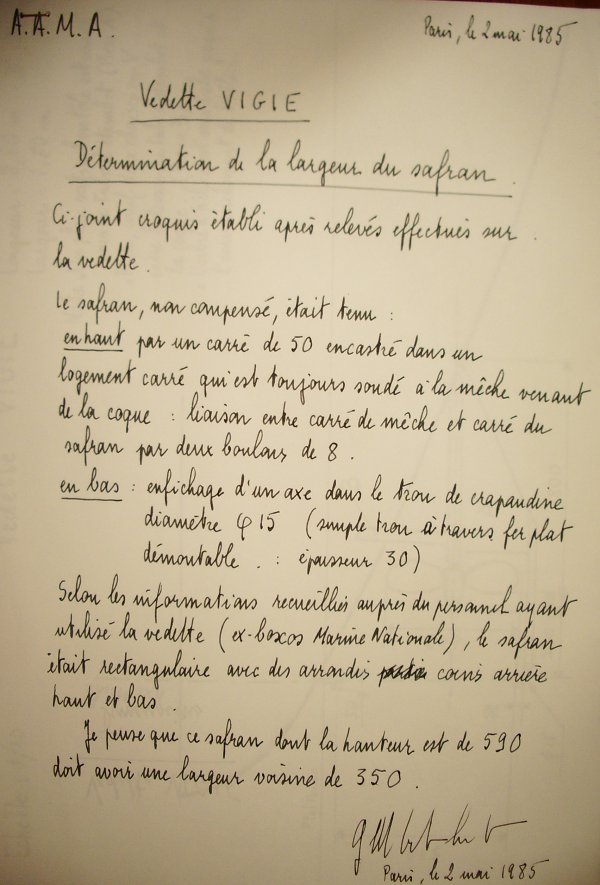 A.A.M.A.
Paris, le 2 mai 1985
Vedette VIGIE
Détermination de la largeur du safran.
Ci-joint croquis établi après relevés effectués sur
la vedette.
Le safran, non compensé, était tenu :
en haut par un carré de 50 encastré dans un
logement carré qui est toujours soudé à la mêche venant
de la coque : liaison entre carré de mêche et carré du
safran par deux boulons de 8.
en bas : enfichage d'un axe dans le trou de crapaudine
diamètre φ 15 (simple trou à travers fer plat
démontable . : épaisseur 30)
Selon les informations recueillies auprès du personnel ayant
utilisé la vedette (ex-boscos Marine Nationale), le safran
était rectangulaire avec des arrondis coins arrière
haut et bas.
Je pense que ce safran dont la hauteur est de 590
doit avoir une largeur voisine de 350.
Paris, le 2 mai 1985